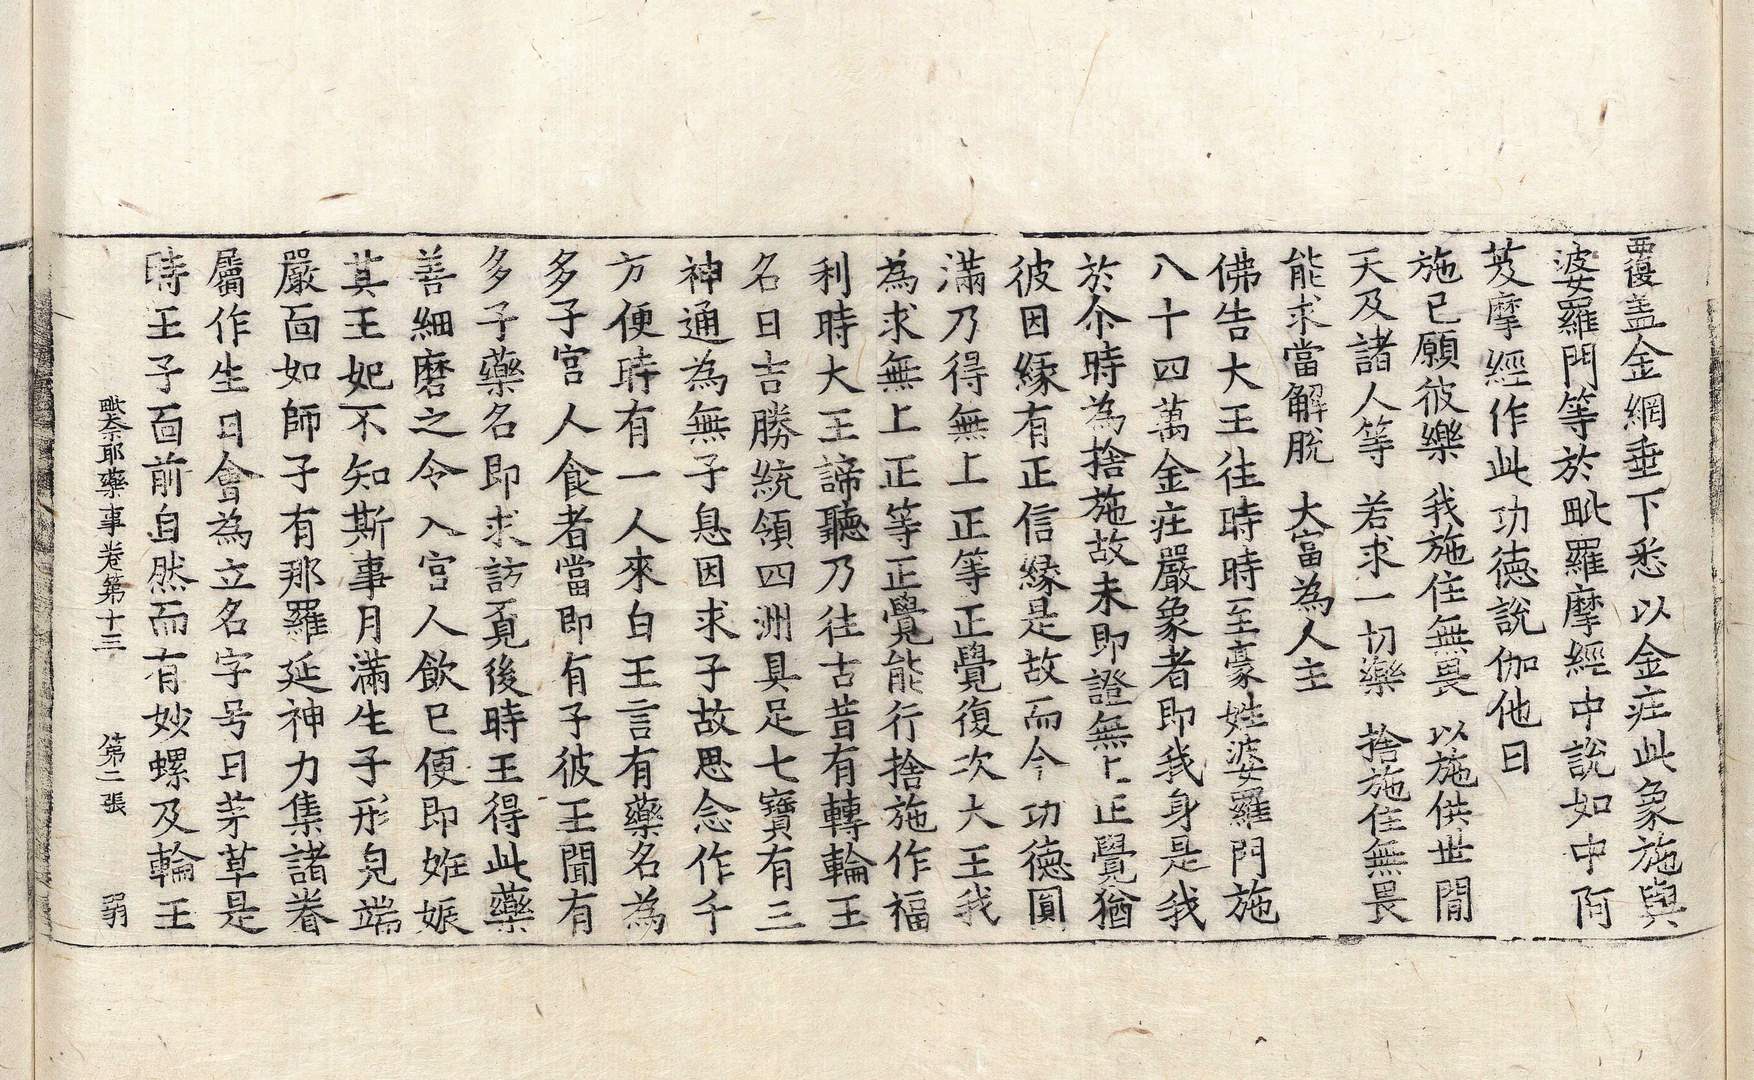 覆盖金網垂下悉以金庄此象施與
婆羅門等於毗羅摩經中說如中阿
芨摩經作此功德說伽他曰
施已願彼樂 我施住無畏 以施供世間
天及諸人等 若求一切樂 捨施住無畏
能求當解脫 大富為人主
佛告大王往時時至豪姓婆羅門施
八十四萬金庄嚴象者即我身是我
於尒時為捨施故未即證無上正覺猶
彼因緣有正信緣是故而今功德圓
滿乃得無上正等正覺復次大王我
為求無上正等正覺能行捨施作福
利時大王諦聽乃往古昔有轉輪王
名曰吉勝統領四洲具足七寶有三
神通為無子息因求子故思念作千
方便時有一人來白王言有藥名為
多子宮人食者當即有子彼王聞有
多子藥名即求訪覓後時王得此藥
善細磨之令入宮人飲已便即姙娠
其王妃不知斯事月滿生子形皃端
嚴面如師子有那羅延神力集諸眷
屬作生日會為立名字号曰茅草是
時王子面前自然而有妙螺及輪王
毗奈耶藥事卷第十三 第二張 弱